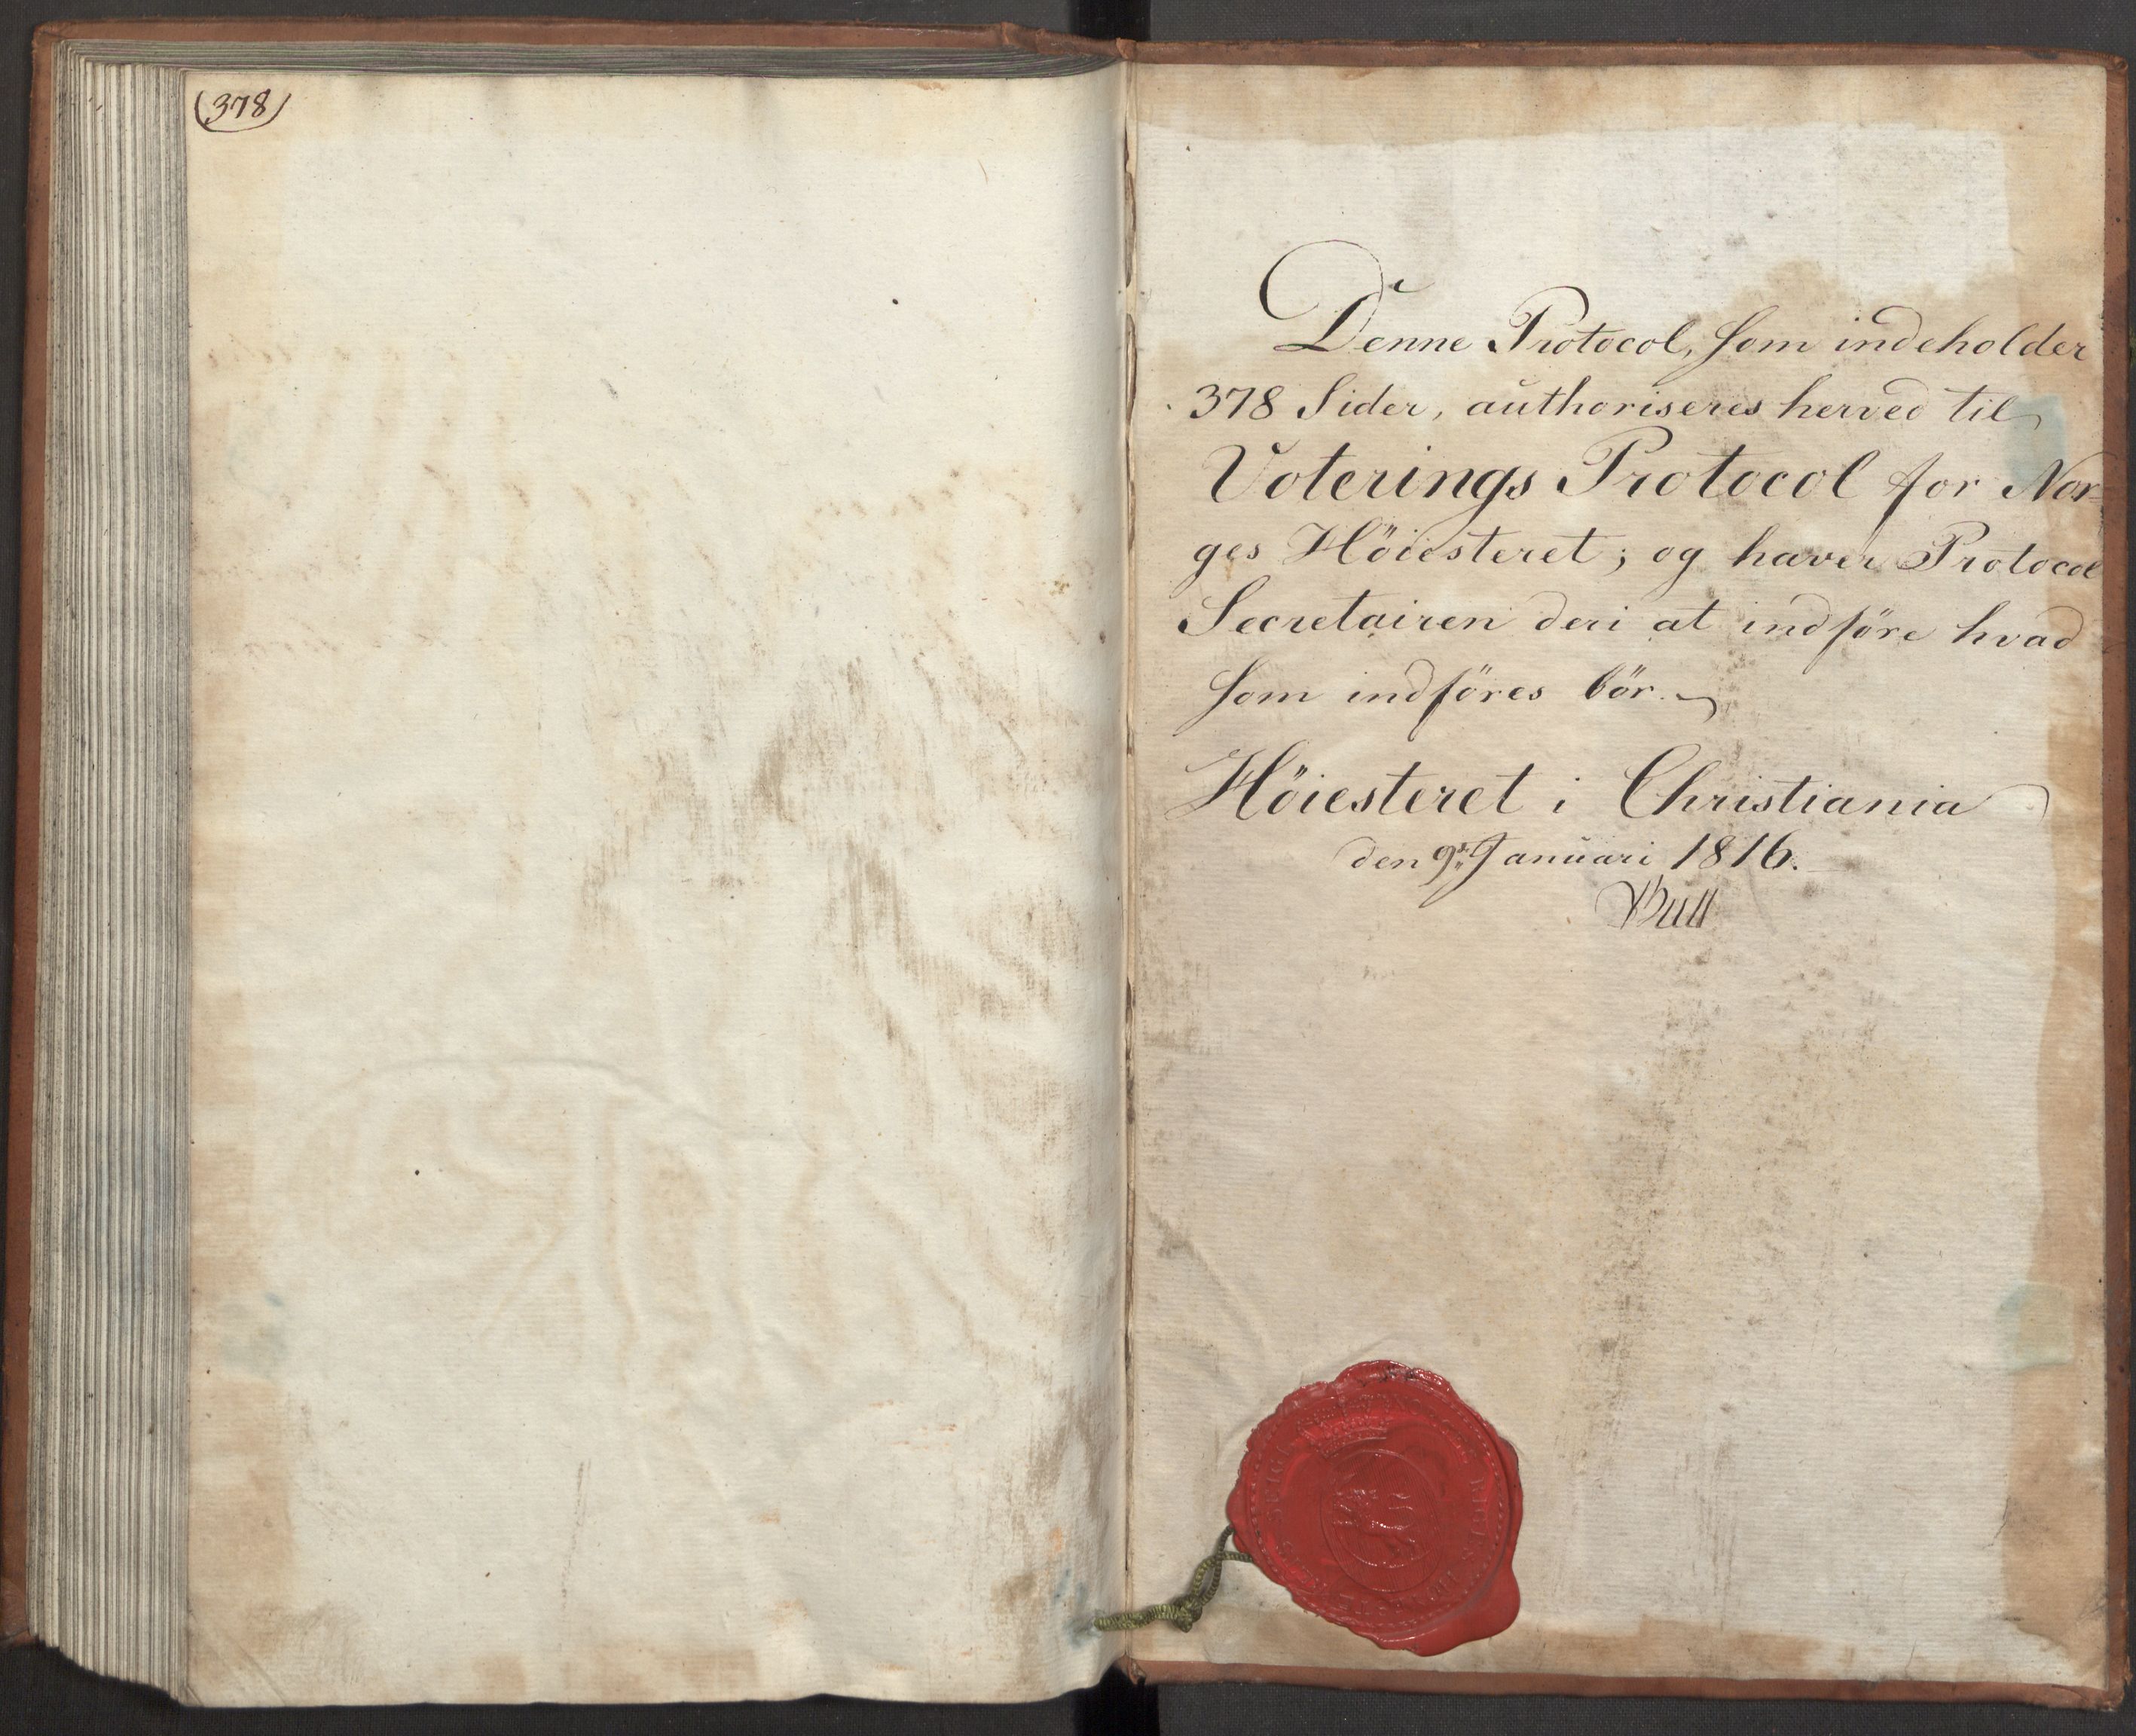 (378)
Denne Protocol, som indeholder
378 Sider, authoriseres herved til
Voterings Protocol for Nor-
ges Höiesteret; og haver Protocol
Secretairen deri at indföre hvad
som indföres bör.
Höiesteret i Christiania
den 9de Januari 1816.
Bull